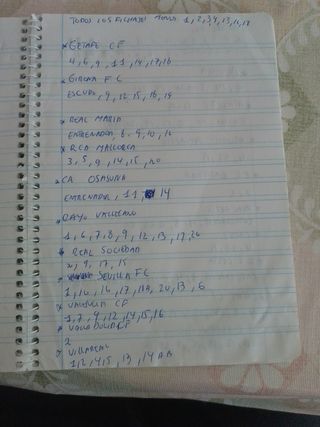 TODOS LOS FICHAJES MENOS 1,2,3,4,13,16,18
* GETAFE CF
4,6,9,11,14,17,16
* GIRONA FC
ESCUDO,9,12,15,18,19
* REAL MADRID
ENTRENADOR, 8,9,10,12
* REA MALLORCA
3,5,9,14,15,20
* CA OSASUNA
ENTRENADOR, 11, 14
* RAYO VALLECANO
1,6,7,8,9,12,13,17,20
* REAL SOCIEDAD
2,9,17,15
SEVILLA FC
1,10,16,17,18A,20,13,6
* VALENCIA CF
1,7,9,12,14,15,16
* VALLADOLID CF
2
* VILLAREAL
1,2,4,5,13,14 AB